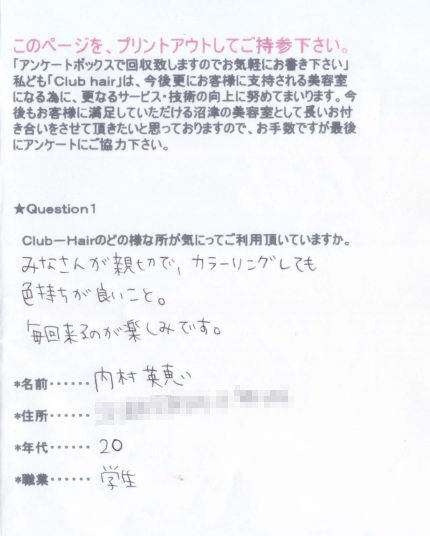 このページを、プリントアウトしてご持参下さい。
「アンケートボックスで回収致しますのでお気軽にお書き下さい」
私ども「Club hair」は、今後更にお客様に支持される美容室
になる為に、更なるサービス・技術の向上に努めてまいります。今
後もお客様に満足していただける沼津の美容室として長いお付
き合いをさせて頂きたいと思っておりますので、お手数ですが最後
にアンケートにご協力下さい。
★Question1
Club－Hairのどの様な所が気にってご利用頂いていますか。
みなさんが親切で、カラーリングしても
色持ちが良いこと。
毎回来るのが楽しみです。
*名前……内村 英恵
*住所……
*年代……20
*職業……学生